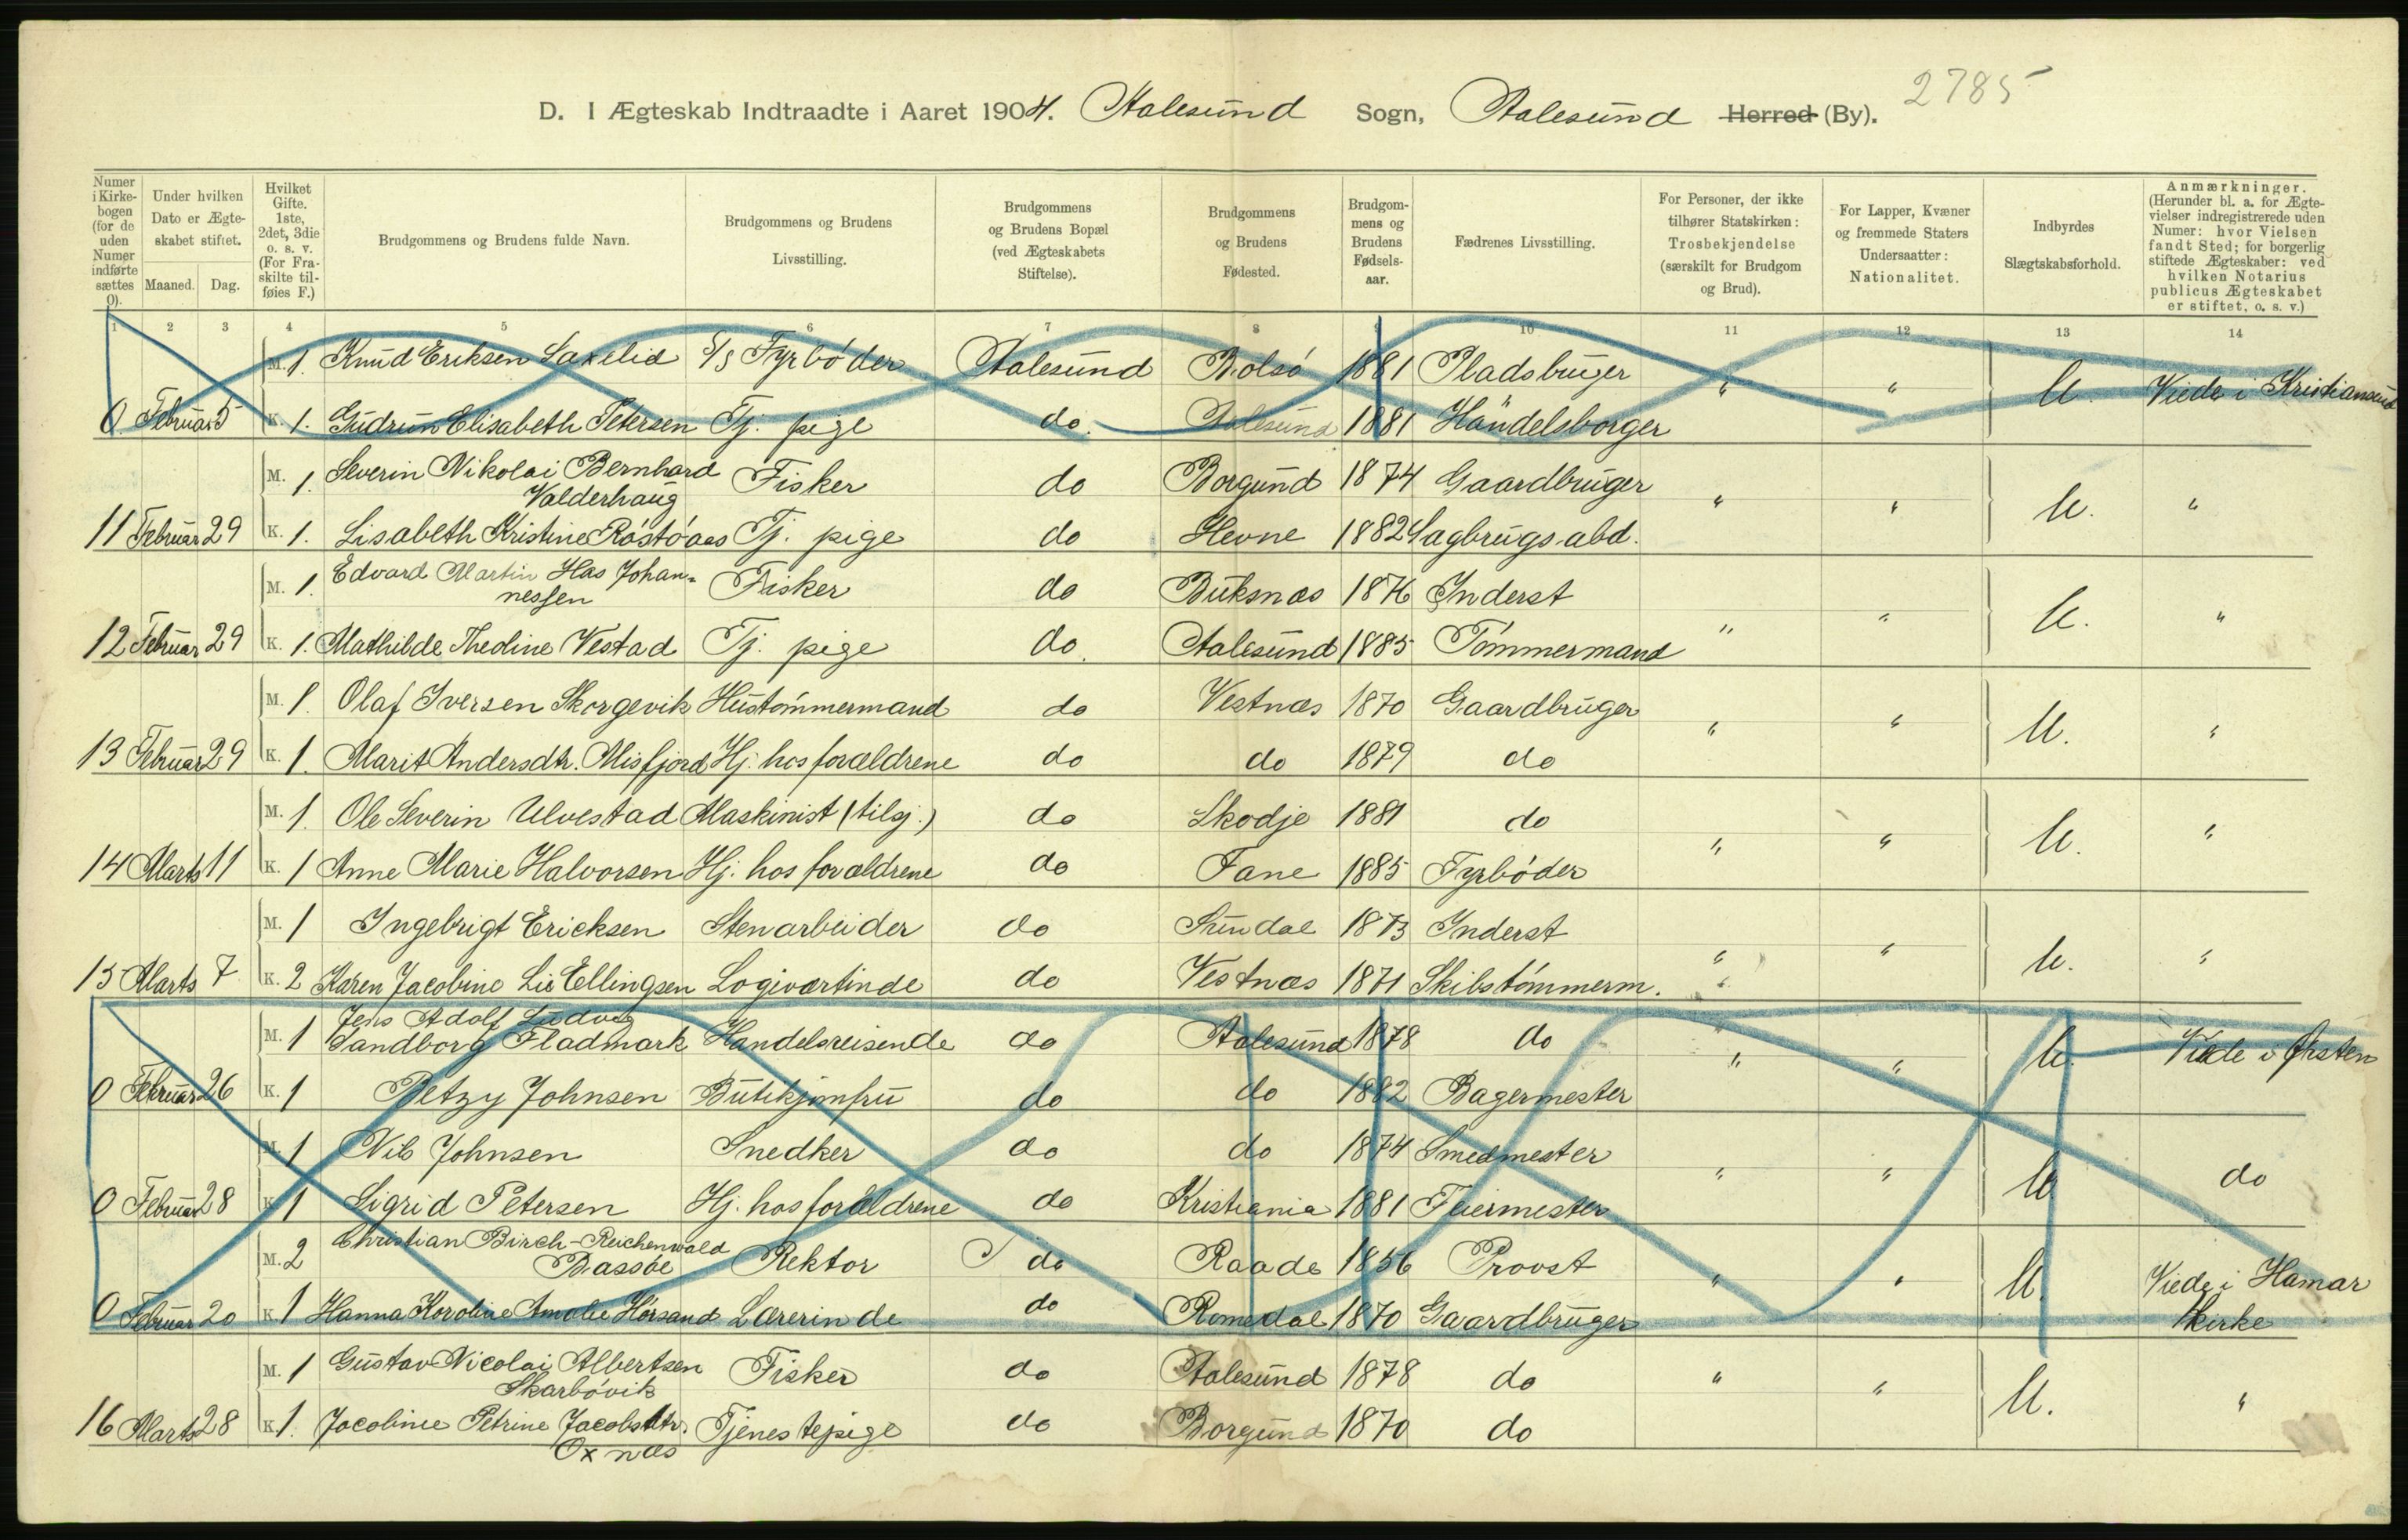 2785
D. I Ægteskab Indtraadte i Aaret 1904. Aalesund Sogn, Aalesund Herred (By).
Numer i Kirkebogen (for de uden Numer indførte sættes 0).
Under hvilken Dato er Ægteskabet stiftet.
Maaned. Dag.
Hvilket Gifte. 1ste, 2det, 3die o. s. v. (For Fraskilte tilføies F.)
Brudgommens og Brudens fulde Navn.
Brudgommens og Brudens Livsstilling.
Brudgommens og Brudens Bopæl (ved Ægteskabets Stiftelse).
Brudgommens og Brudens Fødested.
Brudgommens og Brudens Fødselsaar.
Fædrenes Livsstilling.
For Personer, der ikke tilhører Statskirken: Trosbekjendelse (særskilt for Brudgom og Brud).
For Lapper, Kvæner og fremmede Staters Undersaatter: Nationalitet.
Indbyrdes Slægtskabsforhold.
Anmærkninger. (Herunder bl. a. for Ægtevielser indregistrerede uden Numer: hvor Vielsen fandt Sted; for borgerlig stiftede Ægteskaber: ved hvilken Notarius publicus Ægteskabet er stiftet, o. s. v.)
1 2 3 4 5 6 7 8 9 10 11 12 13 14
M. 1. Knud Eriksen Saxelid S/S Fyrbøder Aalesund Bolsø 1881 Pladsbruger " " U. Viede i Kristiansund
0. Februar 5 K. 1. Gudrun Elisabeth Petersen Tj. pige do. Aalesund 1881 Handelsborger
M. 1. Severin Nikolai Bernhard Valderhaug Fisker do Borgund 1874 Gaardbruger " " U. "
11 Februar 29 K. 1. Lisabeth Kristine Røstøaas Tj. pige do Hevne 1882 Sagbrugs abd.
M. 1. Edvard Martin Has Johannessen Fisker do Buksnæs 1876 Inderst
12 Februar 29 K. 1. Mathilde Thedine Vestad Tj. pige do. Aalesund 1885 Tømmermand " " U. "
M. 1. Olaf Iversen Skorgevik Hustømmermand do Vestnæs 1870 Gaardbruger " " U. "
13 Februar 29 K. 1. Marit Andersdtr. Misfjord Hj. hos forældrene do do 1879 do
M. 1. Ole Severin Ulvestad Maskinist (tilsj.) do Skodje 1881 do " " U. "
14 Marts 11 K. 1 Anne Marie Halvorsen Hj. hos forældrene do Fane 1885 Fyrbøder
M. 1 Ingebrigt Ericksen Stenarbeider do Sundal 1873 Inderst " " U. "
15 Marts 7 K. 2 Karen Jacobine Lie Ellingsen Logiværtinde do Vestnæs 1871 Skibstømmerm.
M. 1 Jens Adolf Ludvig Sandborg Fladmark Handelsreisende do Aalesund 1878 do " " U. Viede i Ørsten
0 Februar 26 K. 1 Betzy Johnsen Butikjomfru do do 1882 Bagermester
M. 1 Nils Johnsen Snedker do do 1874 Smedmester " " U do
0 Februar 28 K. 1 Sigrid Petersen Hj. hos forældrene do Kristiania 1881 Feiermester
M. 2 Christian Birch-Reichenwald Bassøe Rektor do Raade 1856 Provst " " U. Viede i Hamar Kirke
0 Februar 20 K. 1 Hanna Karoline Amalie Horsand Lærerinde do Romedal 1870 Gaardbruger
M. 1 Gustav Nicolai Albertsen Skarbøvik Fisker do Aalesund 1878 do " " U. "
16 Marts 28 K. 1. Jacobine Petrine Jacobsdtr. Oxnæs Tjenestepige do Borgund 1870 do